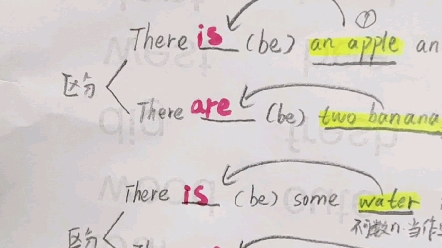 There is (be) an apple an
①
区分
There are (be) two banana
There is (be) some water
不可数n.当作
区分